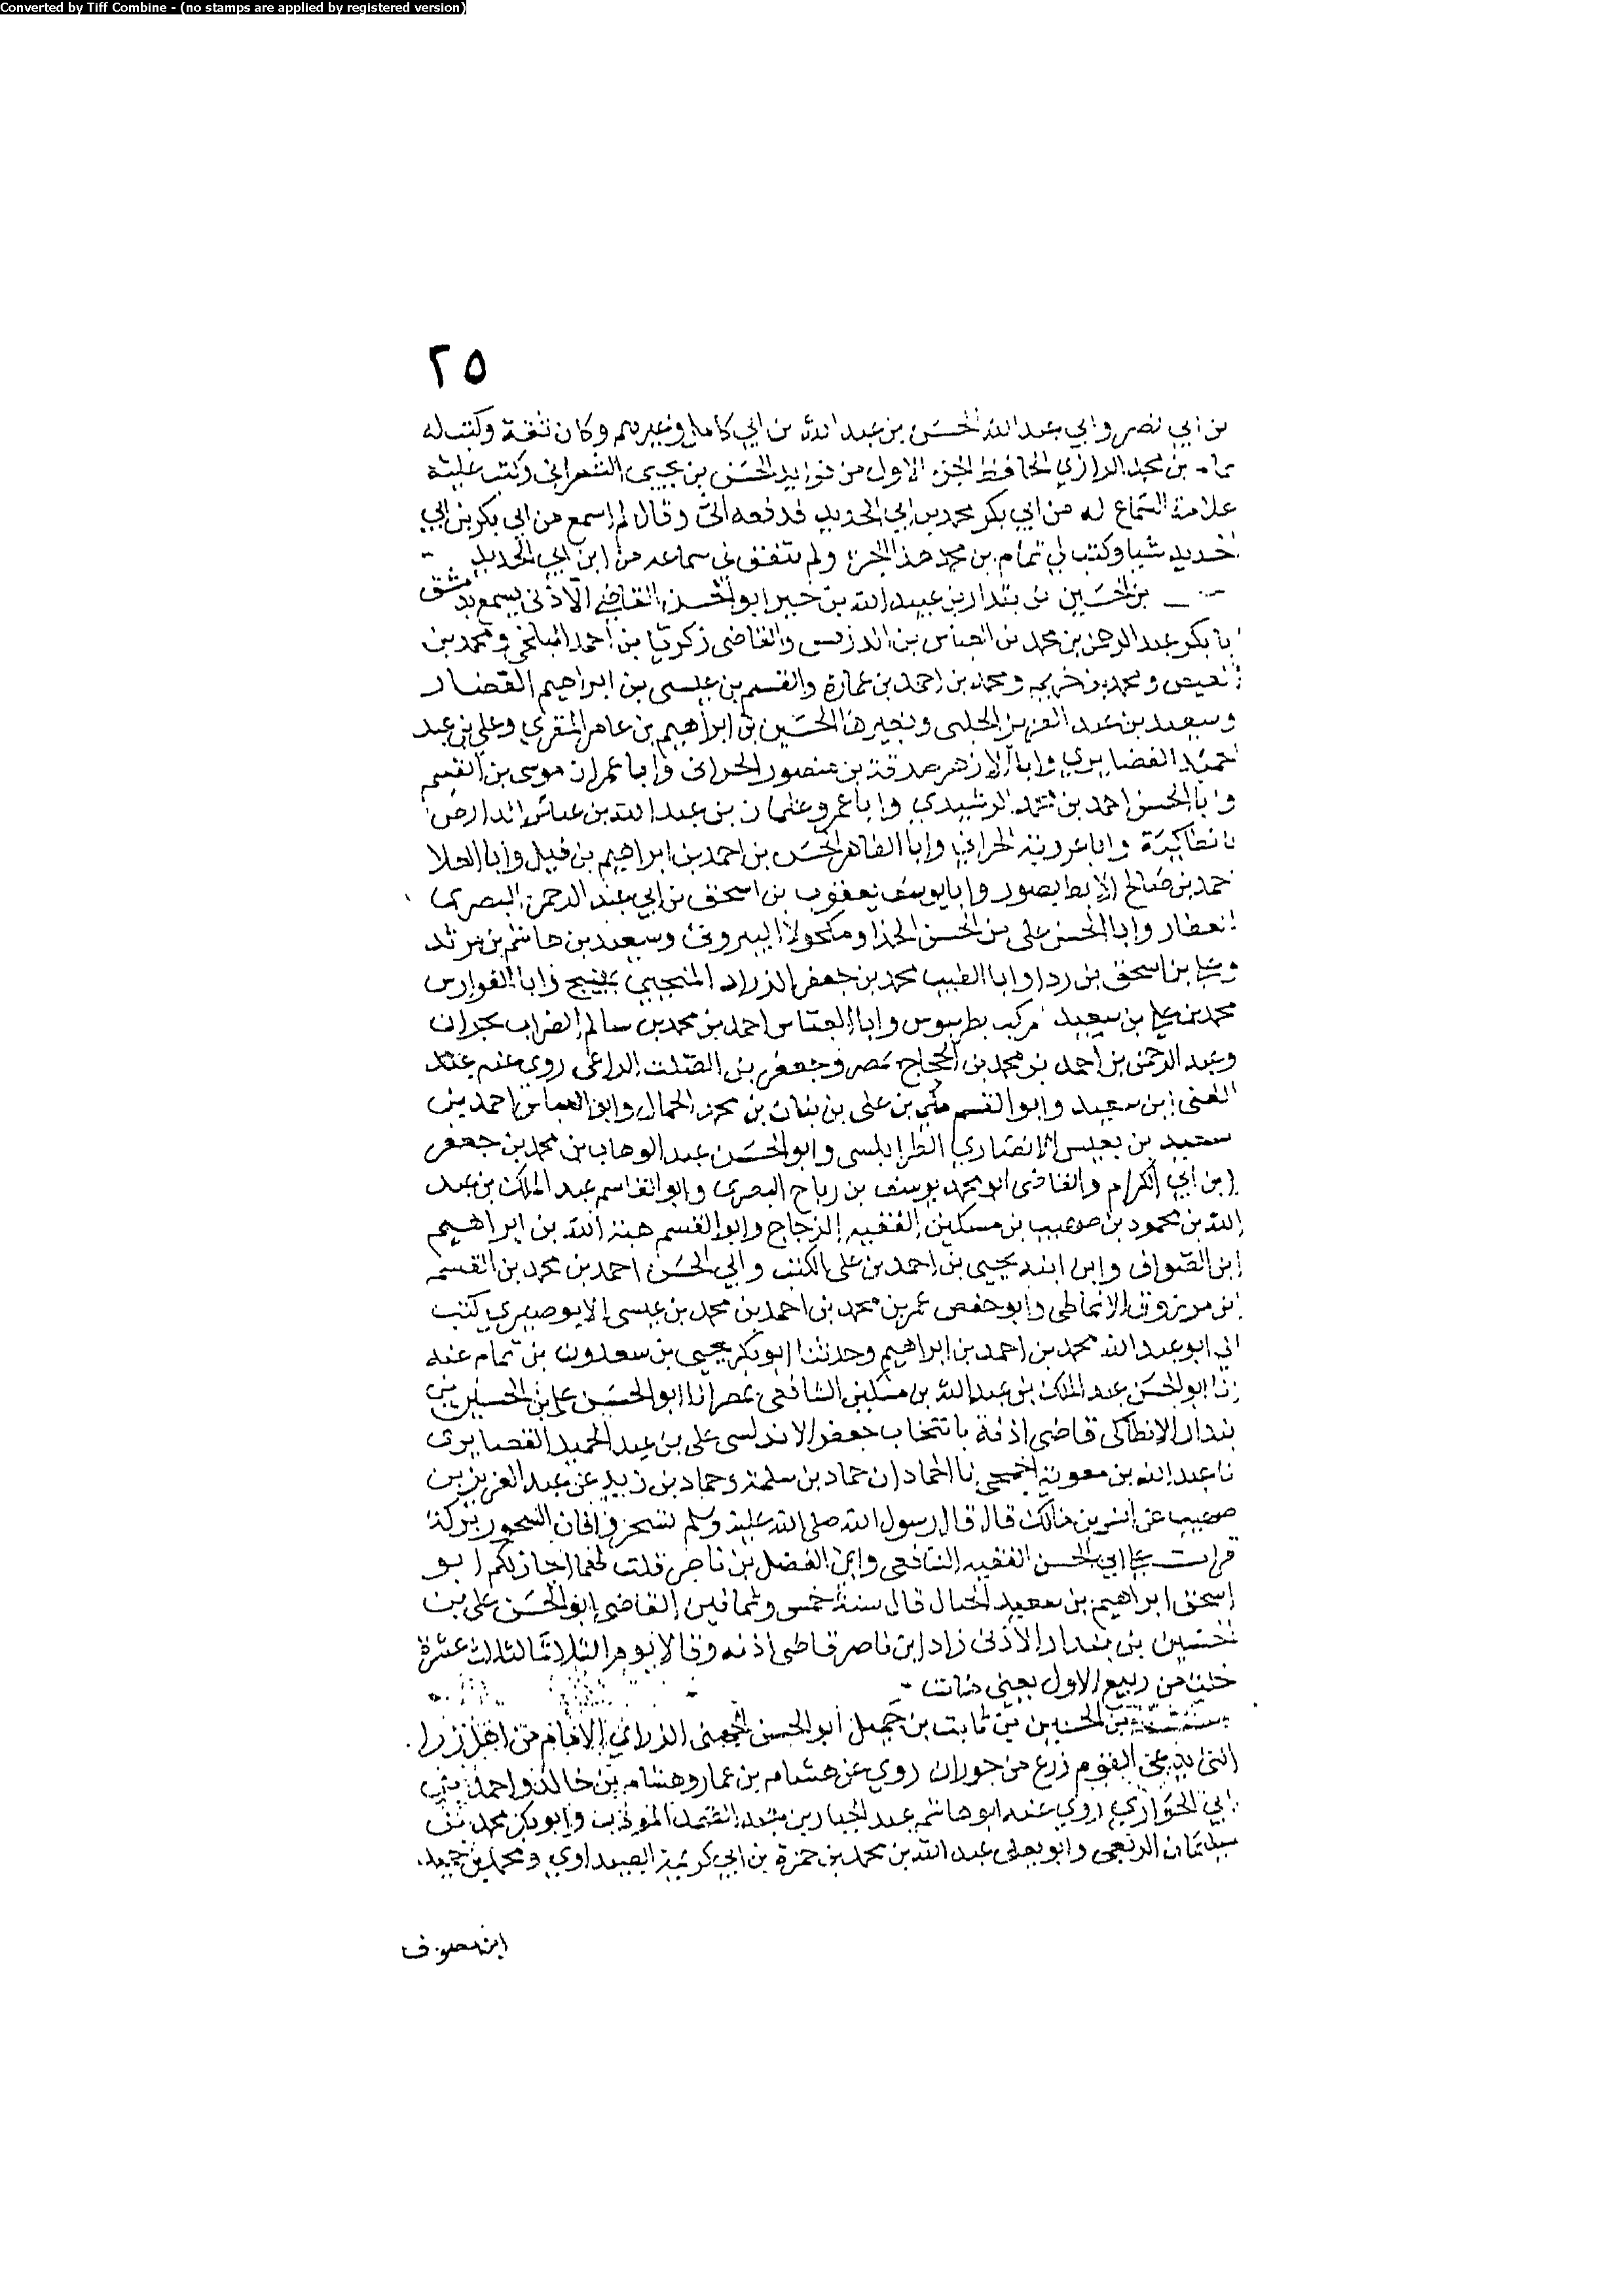 Converted by Tiff Combine - (no stamps are applied by registered version)
٢٥
بن ابي نصر وابي عبد الله الحسن بن عبد الله بن ابي كامل وغيرهم وكان ثقة وكتب له
تمام بن محمد الرازي الحافظ الجزء الاول من فوايد الحسن بن يحيى الشعراني وكتب عليه
علامة السماع له من ابي بكر محمد بن ابي الحديد فدفعه الي وقال لم اسمع من ابي بكر بن ابي
الحديد شيا وكتب لي تمام بن محمد هذا الجزء ولم يتفق لي سماعه من ابن ابي الحديد
بن الحسين بن بندار بن عبيد الله بن خير ابو الحسن القاضي الاذني سمع بدمشق
ابا بكر عبد الرحمن بن محمد بن العباس بن الدرفس والقاضي زكريا بن احمد البلخي ومحمد بن
الفيض ومحمد بن خريم ومحمد بن احمد بن عمارة والقسم بن عيسى بن ابراهيم القصار
وسعيد بن عبد العزيز الحلبي وبغيرها الحسين بن ابراهيم بن عامر المقري وعلي بن عبد
الحميد الغضايري وابا الازهر صدقة بن منصور الحراني وابا عمران موسى بن القسم
وابا الحسن احمد بن محمد الرشيدي وابا عمرو عثمان بن عبد الله بن عباس
بانطاكية وابا عروبة الحراني وابا الطاهر الحسن بن احمد بن ابراهيم بن فيل وابا العلا
احمد بن صالح بصور وابا يوسف يعقوب بن اسحق بن ابي عبد الرحمن البصري
العطار وابا الحسن علي بن الحسن الحذا ومكحولا البيروتي وسعيد بن هاشم بن مرثد
وعلي بن اسحق بن ردا وابا الطيب محمد بن جعفر الزراد المنبجي بمنبج وابا الفوارس
محمد بن علي بن سعيد بطرسوس وابا العباس احمد بن محمد بن سالم الضراب بحران
وعبد الرحمن بن احمد بن محمد بن الحجاج بمصر وجعفر بن الصلت الداعي روى عنه عبد
الغني بن سعيد وابو القسم مكي بن علي بن بنان بن محمد الحمال وابو العباس احمد بن
سعيد بن نفيس الانصاري الطرابلسي وابو الحسن عبد الوهاب بن محمد بن جعفر
ابن ابي الكرام والقاضي ابو محمد يوسف بن رباح البصري وابو القاسم عبد الملك بن عبد
الله بن محمود بن صهيب بن مسكين الفقيه الزجاج وابو القسم هبة الله بن ابراهيم
ابن الصواف وابن ابنه يحيى بن احمد بن علي الكتب وابي الحسن احمد بن محمد بن القسم
ابن مرزوق الانماطي وابو حفص عمر بن محمد بن احمد بن محمد بن عيسى الابوصيري كتب
الي ابو عبد الله محمد بن احمد بن ابراهيم وحدثنا ابو بكر يحيى بن سعدون بن تمام عنه
انا ابو الحسن عبد الملك بن عبد الله بن مسكين الشافعي بمصر انا ابو الحسن علي بن الحسين بن
بندار الانطاكي قاضي اذنة بانتخاب جعفر الاندلسي علي بن عبد الحميد الغضايري
نا عبد الله بن معوية الجمحي نا الحمادان حماد بن سلمة وحماد بن زيد عن عبد العزيز بن
صهيب عن انس بن مالك قال قال رسول الله صلى الله عليه وسلم تسحروا فان السحور بركة
قرات على ابي الحسن الفقيه الشافعي وابي الفضل بن ناصر قلت لهما اجاز لكم ابو
اسحق ابراهيم بن سعيد الحبال قال سنة خمس وثمانين القاضي ابو الحسن علي بن
الحسين بن بندار الاذني زاد ابن ناصر قاضي اذنه وقالا يوم الثلاثا لثلاث عشرة
خلت من ربيع الاول يعني مات
بن الحسين بن ثابت بن جميل ابو الحسن الجهني الزراي الامام من اهل زرا
التي تدعى اليوم زرع من حوران روي عن هشام بن عمار وهشام بن خالد واحمد بن
ابي الحواري روي عنه ابو هاشم عبد الجبار بن عبد الصمد المودب وابو بكر محمد بن
سليمان الربعي وابو يعلى عبد الله بن محمد بن حمزة بن ابي كريمة الصيداوي ومحمد بن حميد
ابن معيوف